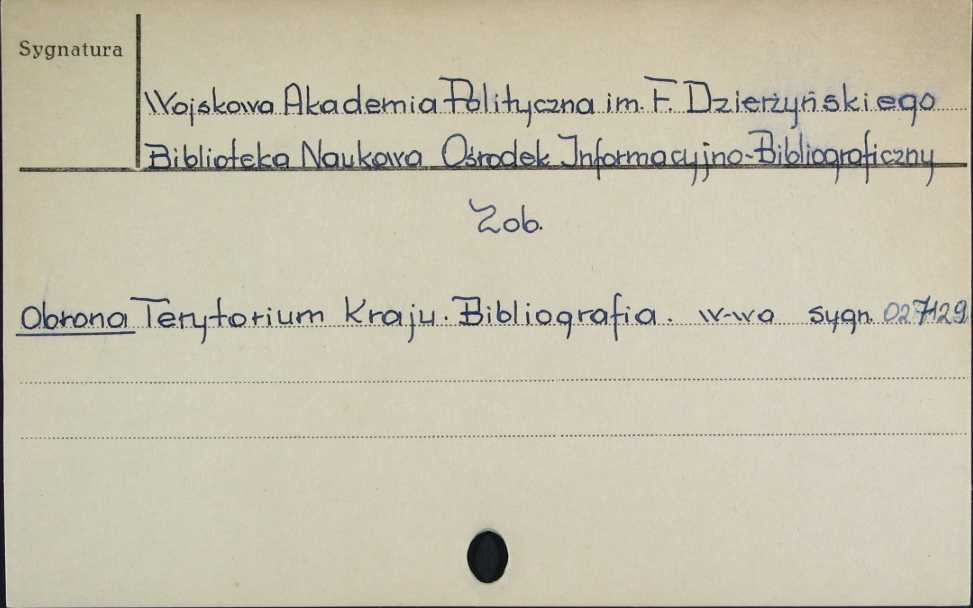 Sygnatura
Wojskowa Akademia Polityczna im. F. Dzierżyńskiego
Biblioteka Naukowa Ośrodek Informacyjno-Bibliograficzny
Zob.
Obrona Terytorium Kraju. Bibliografia. W-wa sygn. 027129